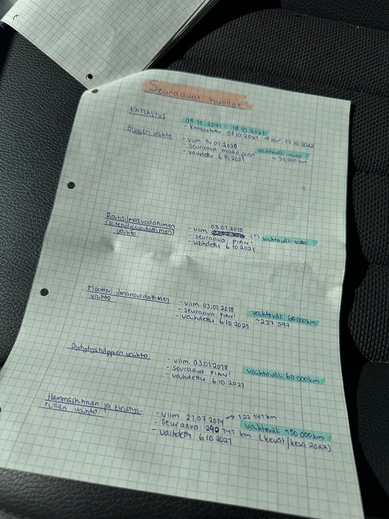 Seuraavat huollot
KATSASTUS
- Katsastettu 08.10.2021
Öljyjen vaihto
- viim. 14.01.2018
- seuraava
- vaihdettu 6.10.2021
vaihtoväli
Raitisilmasuodattimen
(siitepölysuodattimen)
vaihto
- viim. 03.01.2018
- seuraava PIAN!
- vaihdettu 6.10.2021
vaihtoväli
Moottorin ilmansuodattimen
vaihto
- viim. 03.01.2018
- seuraava PIAN!
- vaihdettu 6.10.2021
vaihtoväli 60 000 km
~237 597
Sytytystulppien vaihto
- viim. 03.01.2018
- seuraava PIAN!
- vaihdettu 6.10.2021
vaihtoväli 60 000 km
Hammashihnan ja
vaihto
- viim. 21.07.2014 → 122 141 km
- seuraava: 242 141 km (kevät/kesä 2022)
- vaihdettu 6.10.2021
vaihtoväli